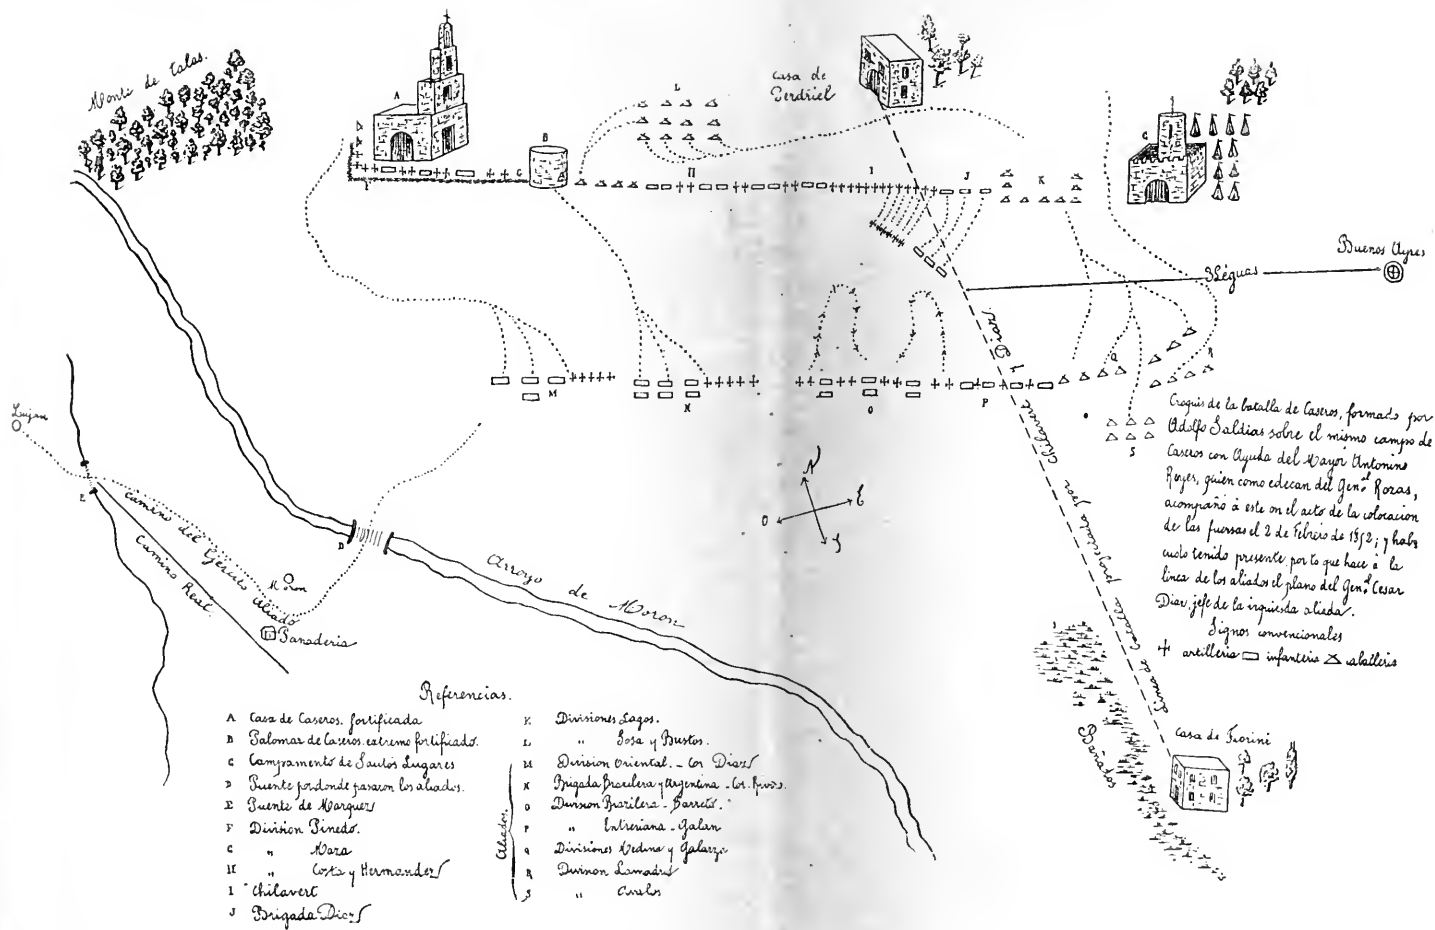 Monte de Talas.
A
B
L
Casa de
Perdriel
C
F
G
H
I
J
K
Buenos Ayres
3 Léguas
M
N
O
P
Q
R
S
Lujan
E
Camino del Ejército Aliado
Camino Real
Moron
Panaderia
D
Arroyo de Moron
N
O
E
S
Linea de batalla proyectada por Chilavert y Diaz
Croquis de la batalla de Caseros, formado por
Adolfo Saldias sobre el mismo campo de
Caseros con Ayuda del Mayor Antonino
Reyes, quien como edecan del Genˢᵃˡ Rozas,
acompaño à este en el acto de la colocacion
de las fuersas el 2 de Febrero de 1852; y habi
endo tenido presente por lo que hace à la
linea de los aliados el plano del Genˢᵃˡ Cesar
Diaz, jefe de la izquierda aliada.
Signos convencionales
artilleria infanteria caballeria
Bañados
Casa de Fiorini
Referencias.
A Casa de Caseros. fortificada
B Palomar de Caseros. extremo fortificado.
C Campamento de Santos Lugares
D Puente por donde pasaron los aliados.
E Puente de Marquez
F Division Pinedo.
G " Maza
H " Costa y Hernandez
I Chilavert
J Brigada Diaz
K Divisiones Lagos.
L " Sosa y Bustos.
Aliados
M Division Oriental. - Cor Diaz
N Brigada Brazilera y Argentina - Cor. Rivas.
O Division Brazilera - Barreto.
P " Entreriana - Galan
Q Divisiones Medina y Galarza
R Division Lamadrid
S " Avalos